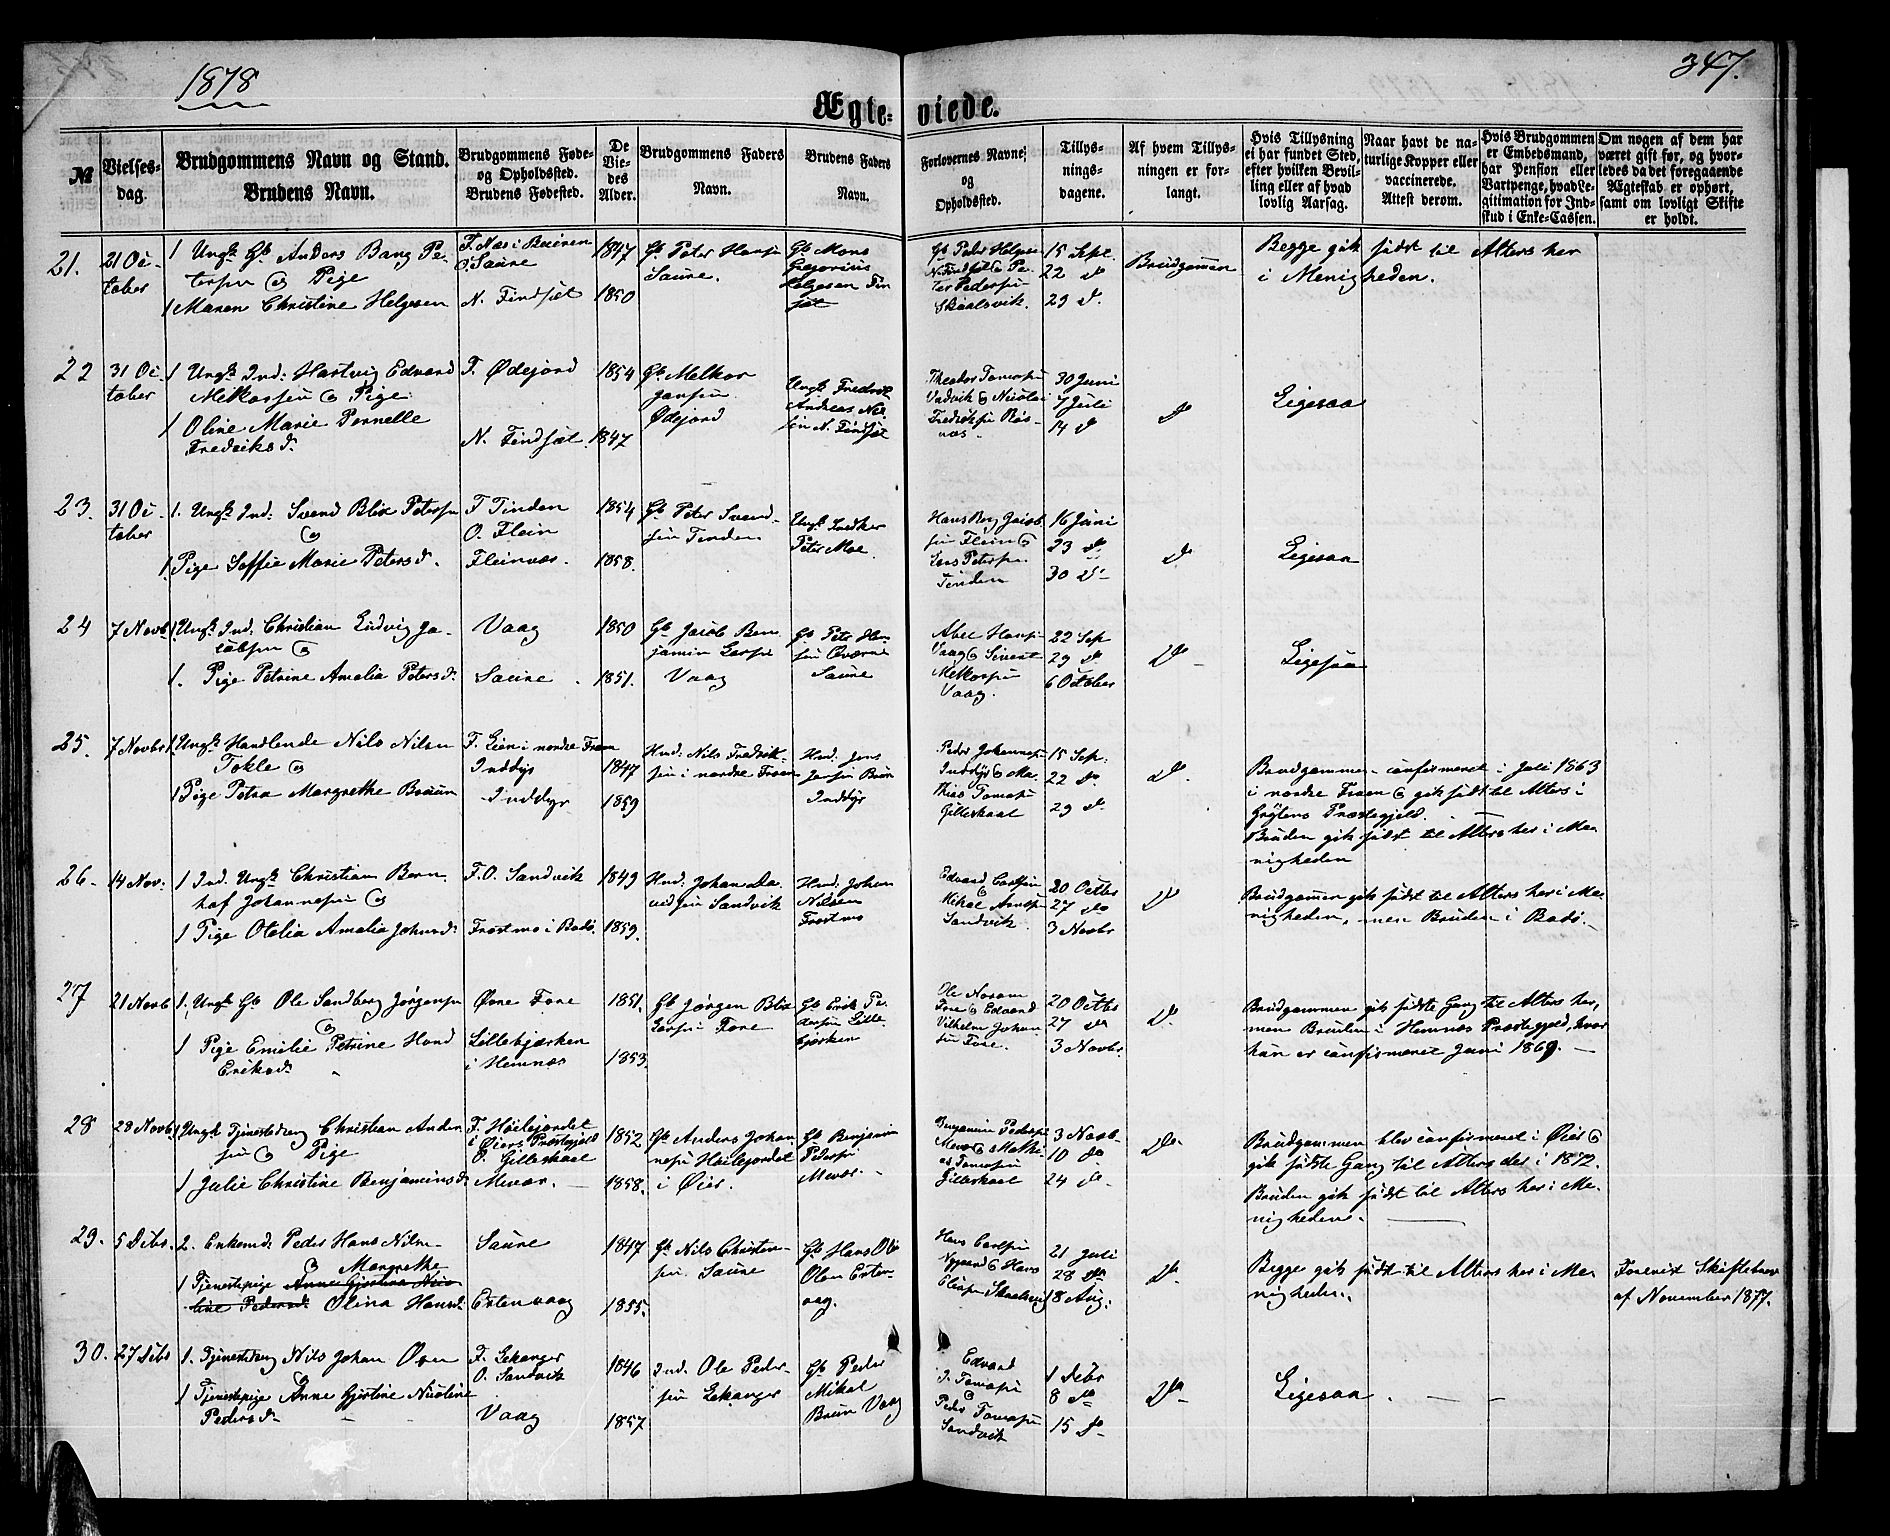 1878
347.
Ægteviede.
№
Vielsesdag.
Brudgommens Navn og Stand.
Brudens Navn.
Brudgommens Føde- og Opholdssted.
Brudens Fødested.
De Viedes Alder.
Brudgommens Faders Navn.
Brudens Faders Navn.
Forlovernes Navne, og Opholdsted.
Tillysningsdagene.
Af hvem Tillysningen er forlangt.
Hvis Tillysning ei har fundet Sted, efter hvilken Bevilling eller af hvad lovlig Aarsag.
Naar havt de naturlige Kopper eller vaccinerede. Attest derom.
Hvis Brudgommen er Embedsmand, har Pension eller Vartpenge, hvad Legitimation for Indskud i Enke-Cassen.
Om nogen af dem har været gift før, og hvorledes da det foregaaende Ægtestab er ophørt, samt om lovligt Skifte er holdt.
21. 21 October
1 Ungk. Gb. Anders Bang Petersen & Pige
1 Maren Christine Helgesen
F. Næs i Beieren
O. Saure
N. Findsæt
1847
1850
Gb. Peter Hansen Saure.
Gb. Mons Gregorius Helgesen Findsæt
Gb. Peder Helgesen N. Findsæt & Peter Pedersen Skaalsvik
15 Sept.
22 do
29 do
Brudgommen
Begge gik sidst til Alters her i Menigheden.
22 31 October
1 Ungk. Ind: Hartvig Edvard Melkorsen & Pige
1 Oline Marie Pernelle Fredriksd.
F. Ødejord
N. Findsæt
1854
1847
Gb. Melkor Jansen Ødejord
Ungk. Fredrik Andreas Nilsen N. Findsæt
Theodor Tomasen Vadvik & Nicolai Fredriksen Røsnæs
30 Juni
7 Juli
14 do
do
Ligesaa
23. 31 October
1. Ungk. Ind: Svend Blix Petersen &
1. Pige Soffie Marie Petersd.
F Tinden
O. Flein
Fleinvær.
1854
1858.
Gb. Peter Svendsen Tinden
Ungk. Snedker Peter Moe.
Hans Borg Jacobsen Flein & Jens Petersen Tinden
16 Juni
23 do
30 do
do
Ligesaa
24 7 Novb.
1. Ungk. Ind. Christian Ludvig Jacobsen &
1. Pige Petrine Amalia Petersd.
Vaag
Saure
1850
1851.
Gb. Jacob Benjamin Larsen Vaag
Gb. Peter Saure
Abel Hansen Vaag & Sivert Melkorsen Vaag.
22 Sep
29 do
6 October
do
Ligesaa
25. 7 Novbr.
1. Ungk. Handlende Nils Nilsen Tokle &
1 Pige Petra Margrethe Bruun
F. Lien i nordre Fron
Inddyr
Inddyr
1847
1859
Hmd: Nils Fredriksen i nordre Fron
Hmd. Jens Jansen Bruun Inddyr
Peder Johannesen Inddyr & Mathias Tomasen Gilleskaal
15 Sep.
22 do
29 do
do.
Brudgommen confirmeret i Juli 1863 i nordre Fron & gik sidst til Alters i Præstegjeld.
Bruden gik sidst til Alters her i Menigheden
26. 14 Nov:
1 Ind. Ungk. Christian Bernhof Johannesen &
1 Pige Otelia Amalia Johnsd:
F.O. Sandvik
Frostmo i Bodø.
1849
1859.
Hmd: Johan Davidsen Sandvik
Hmd: Johan Nilsen Frostmo
Edvard Carlsen & Mikal Arntsen Sandvik
20 Octbr
27 do
3 Novbr
do
Brudgommen gik sidst til Alters her i Menigheden, men Bruden i Bodø.
27 21 Novb
1. Ungk. Gb Ole Sandberg Jørgensen &
1 Pige Emilie Petrine Hond Eriksd.
Øvre Fore
Lillebjerken i Hemnæs
1851.
1853.
Gb Jørgen Blix Larsen Fore
Gb. Erik Pedersen Lillebjerken
Ole Fore & Edvard Vilhelm Johansen Fore.
20 Octbr
27 do
3 Novbr.
do.
Brudgommen gik sidste Gang til Alters her, men Bruden i Hemnæs Præstegjeld, hvor hun er confirmeret Juni 1869.
28 28 Novb.
1 Ungk. Tjenestedreng Christian Andersen & Pige
1 Julie Christine Benjaminsd
F. Høilejordet i Øiers Præstegjeld
O. Gilleskaal
Mevær.
1852
1858.
Gb. Anders Johannesen Høilejordet i Øier.
Gb Benjamin Pedersen Mevær
Benjamin Pedersen Mevær & Mathias Tomasen Gilleskaal
3 Novb.
10 do
24 do
do
Brudgommen blev confirmeret i Øier & gik sidste Gang til Alters der i 1872.
Bruden gik sidst til Alters her i Menigheden.
29. 5 Debr.
2. Enkemd: Peder Hans Nilsen &
1 Tjenestepige Anne Gjertine Nicoline Pedersd. Margrethe Olina Hansd.
Saure
Estenvaag
1847
1855.
Gb. Nils Christensen Saure
Gb Hans Ole Olsen Estenvaag.
Hans Carlsen Nygaard & Hans
21 Juli
28 do
18 Aug.
do
Begge gik sidst til Alters her i Menigheden.
Forevist Skiftebrev af November 1877.
30. 27 Debr
1. Tjenestedreng Nils Johan Olsen &
1 Tjenestepige Anne Gjertine Nicoline Pedersd.
F. Lekanger
O. Sandvik
Vaag
1846
1857.
Ind. Ole Pedersen Lekanger
Gb Peder Mikal Bruun Vaag
Edvard J. Tomasen & Peder Tomasen Sandvik
1 Debr
8 do
15 do
do
Ligesaa.